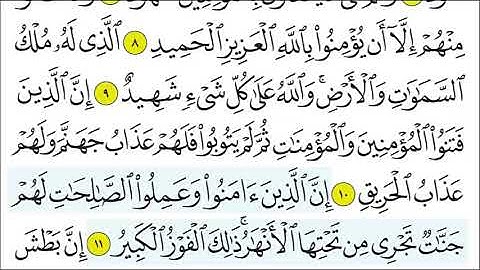 مِنْهُمْ إِلَّآ أَن يُؤْمِنُوا۟ بِٱللَّهِ ٱلْعَزِيزِ ٱلْحَمِيدِ ٨ ٱلَّذِى لَهُۥ مُلْكُ
ٱلسَّمَٰوَٰتِ وَٱلْأَرْضِ ۚ وَٱللَّهُ عَلَىٰ كُلِّ شَىْءٍ شَهِيدٌ ٩ إِنَّ ٱلَّذِينَ
فَتَنُوا۟ ٱلْمُؤْمِنِينَ وَٱلْمُؤْمِنَٰتِ ثُمَّ لَمْ يَتُوبُوا۟ فَلَهُمْ عَذَابُ جَهَنَّمَ وَلَهُمْ
عَذَابُ ٱلْحَرِيقِ ١٠ إِنَّ ٱلَّذِينَ ءَامَنُوا۟ وَعَمِلُوا۟ ٱلصَّٰلِحَٰتِ لَهُمْ
جَنَّٰتٌ تَجْرِى مِن تَحْتِهَا ٱلْأَنْهَٰرُ ۚ ذَٰلِكَ ٱلْفَوْزُ ٱلْكَبِيرُ ١١ إِنَّ بَطْشَ